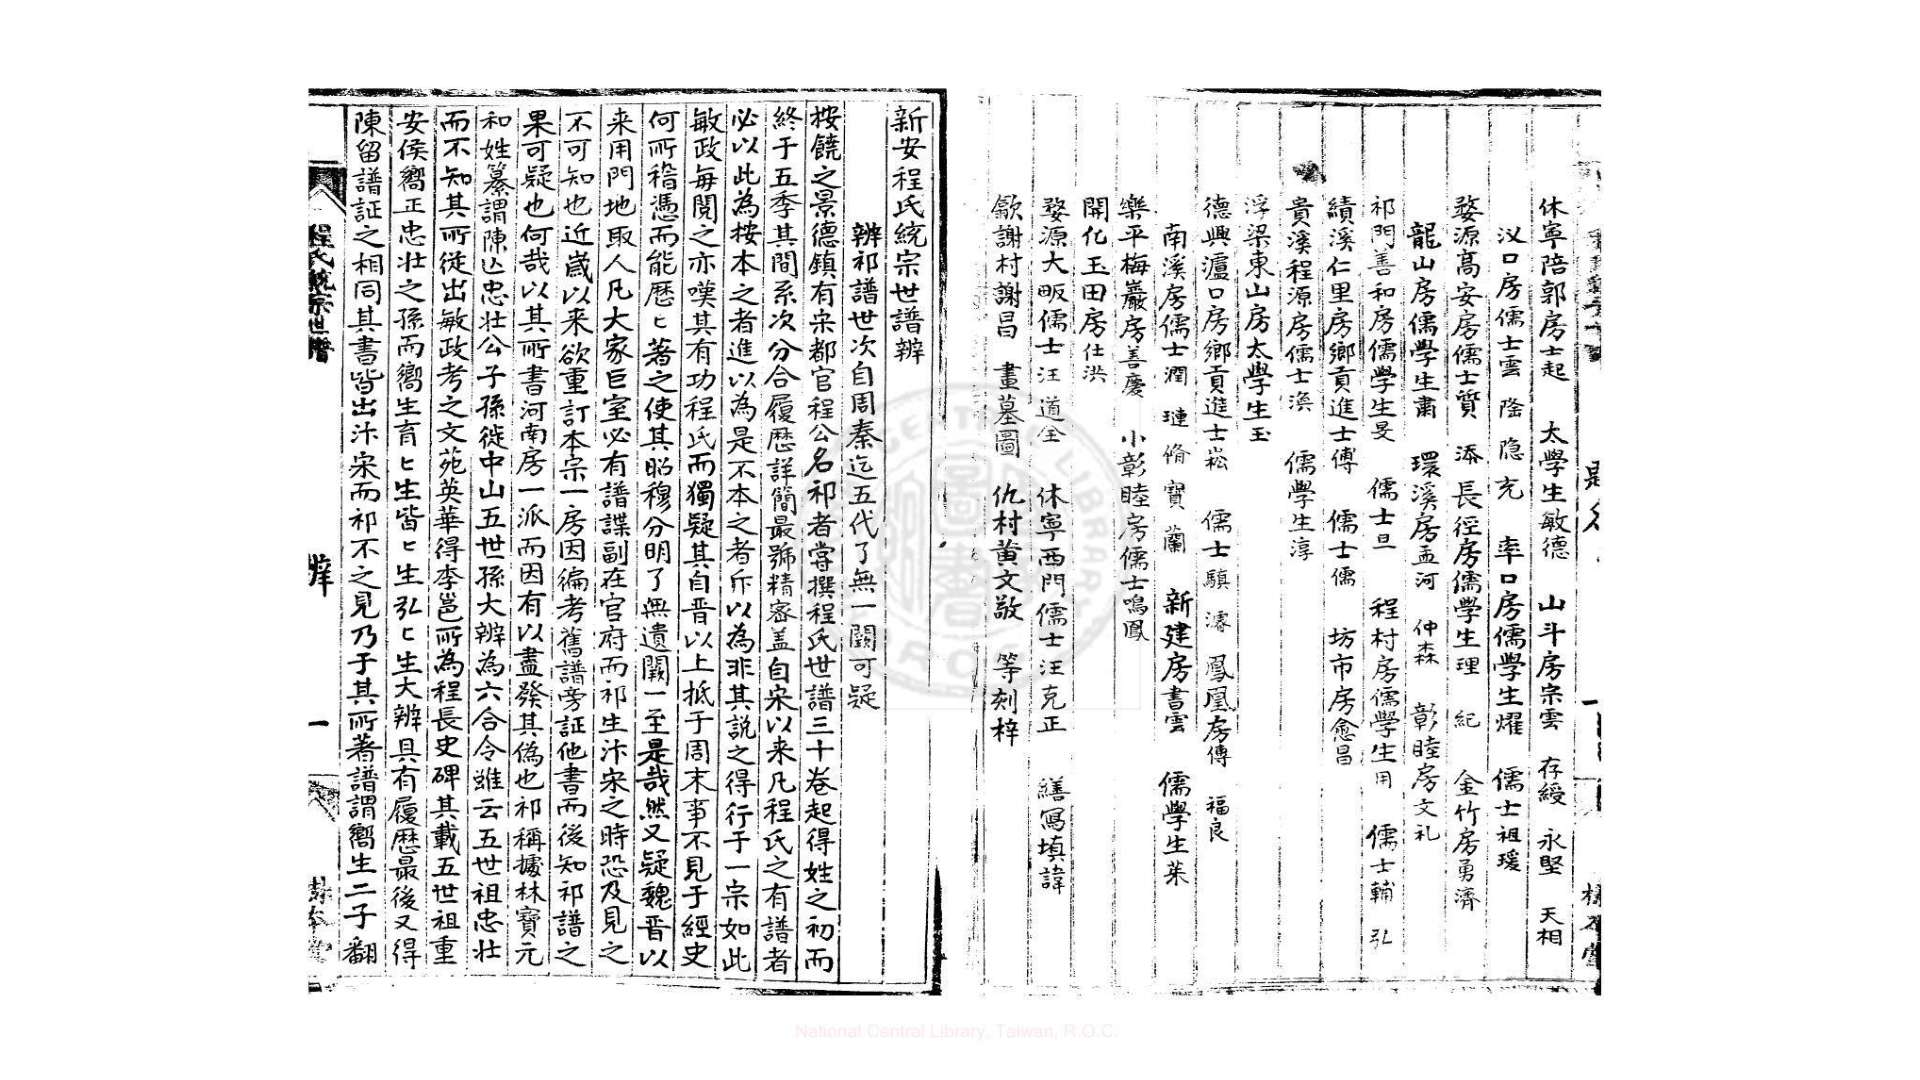 休寧陪郭房士起　太學生敏德　山斗房宗雲　存綬　永堅　天相
汊口房儒士雲　陰　隐　充　率口房儒學生燿　儒士祖瑗
婺源高安房儒士質　添　長徑房儒學生理　紀　金竹房勇濟
龍山房儒學生肅　環溪房孟河　仲森　彰睦房文礼
祁門善和房儒學生旻　儒士旦　程村房儒學生用　儒士輔　弘
績溪仁里房鄉貢進士傅　儒士儒　坊市房愈昌
貴溪程源房儒士渙　儒學生淳
浮梁東山房太學生玉
德興瀘口房鄉貢進士崧　儒士驥　濬　鳳凰房傅　福良
南溪房儒士潤　璉　脩　寶　蘭　新建房書雲　儒學生萊
樂平梅巖房善慶　小彰睦房儒士鳴鳳
開化玉田房仕洪
婺源大畈儒士汪道全　休寧西門儒士汪克正　繕冩填諱
歙謝村謝昌　畫墓圖　仇村黄文敬　等刻梓
新安程氏統宗世譜辨
辨祁譜世次自周秦迄五代了無一闕可疑
按饒之景德鎮有宋都官程公名祁者嘗撰程氏世譜三十卷起得姓之初而
終于五季其間系次分合履歷詳簡最號精密盖自宋以来凡程氏之有譜者
必以此為按本之者進以為是不本之者斥以為非其説之得行于一宗如此
敏政每閱之亦嘆其有功程氏而獨疑其自晋以上抵于周末亊不見于經史
何所稽憑而能歷〻著之使其昭穆分明了無遺闕一至是哉然又疑魏晋以
来用門地取人凡大家巨室必有譜諜副在官府而祁生汴宋之時恐及見之
不可知也近嵗以来欲重訂本宗一房因徧考舊譜旁証他書而後知祁譜之
果可疑也何哉以其所書河南房一派而因有以盡發其偽也祁稱據林寶元
和姓纂謂陳亾忠壮公子孫徙中山五世孫大辨為六合令雖云五世祖忠壮
而不知其所從出敏政考之文苑英華得李邕所為程長史碑其載五世祖重
安侯嚮正忠壮之孫而嚮生育〻生皆〻生弘〻生大辨具有履歷最後又得
陳留譜証之相同其書皆出汴宋而祁不之見乃于其所著譜謂嚮生二子翻
程氏統宗世譜
辨
一